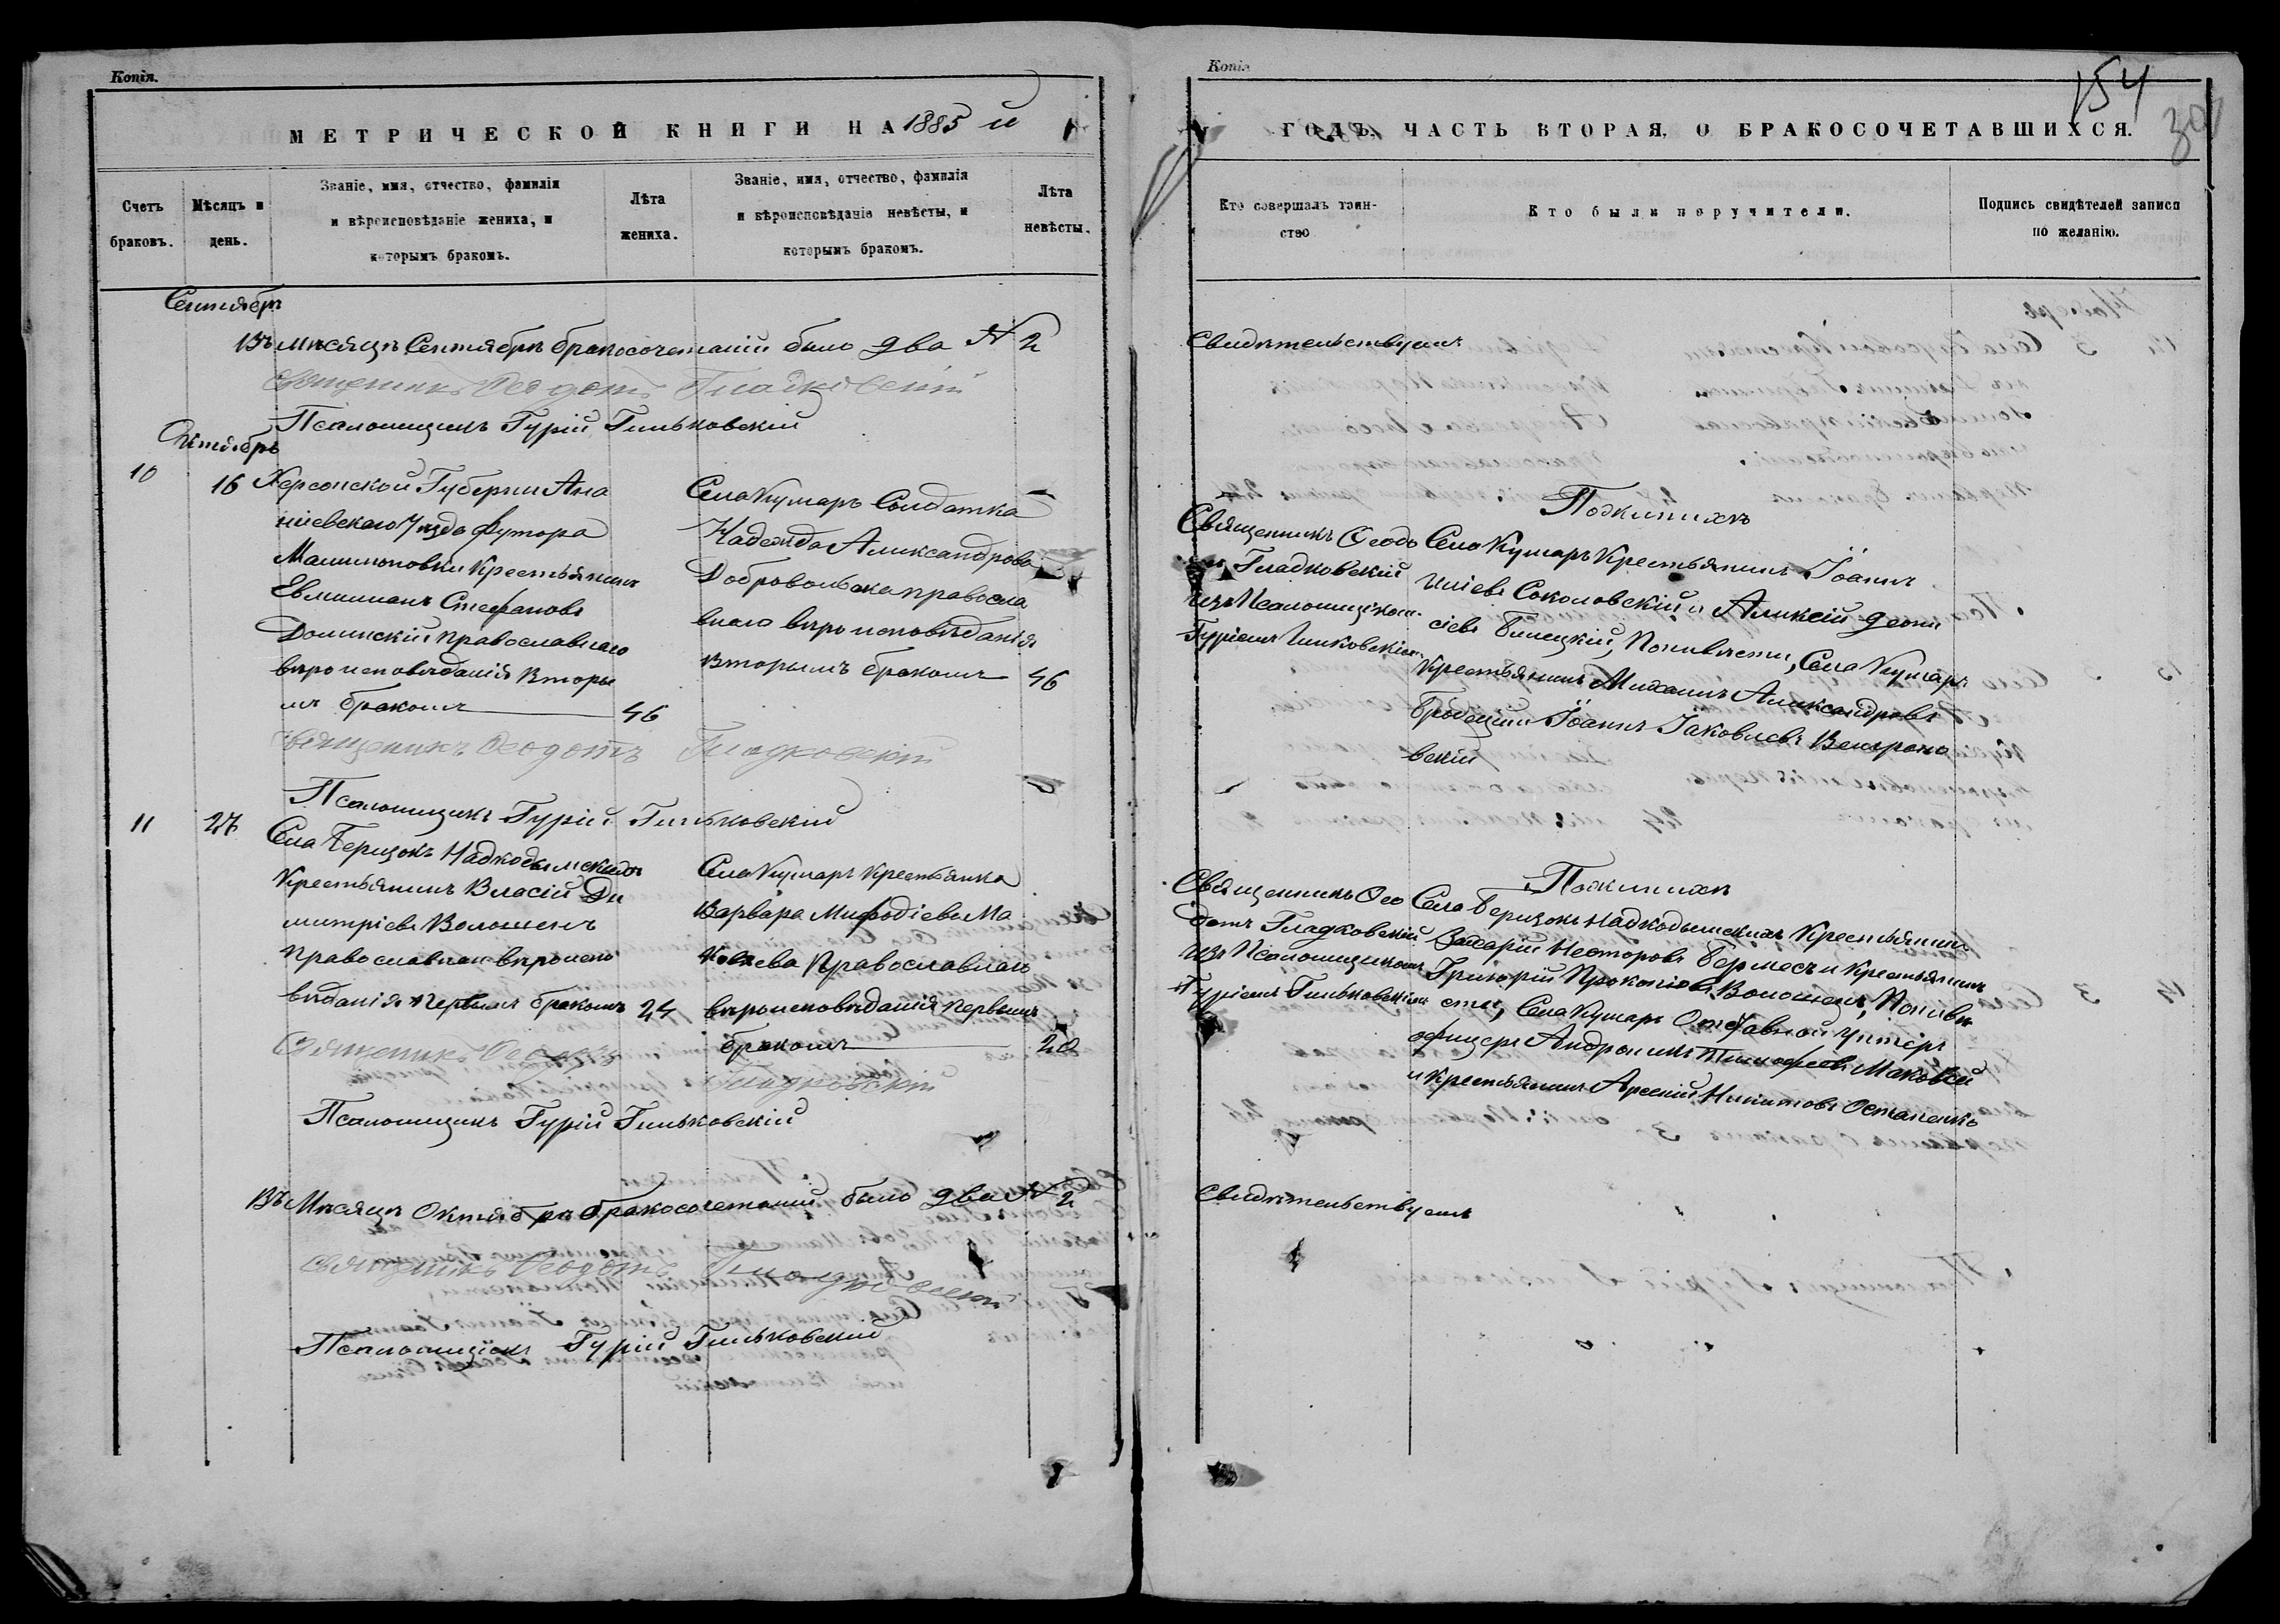 Копія.
МЕТРИЧЕСКОЙ КНИГИ НА 1885 й
Счетъ браковъ.
Мѣсяцъ и день.
Званіе, имя, отчество, фамилія и вѣроисповѣданіе жениха, и которымъ бракомъ.
Лѣта жениха.
Званіе, имя, отчество, фамилія и вѣроисповѣданіе невѣсты, и которымъ бракомъ.
Лѣта невѣсты.
Сентябрь
Въ мѣсяцѣ Сентябрѣ бракосочетаній было два № 2
Священникъ Ѳеодотъ Гладковскій
Псаломщикъ Гурій Гильковскій
Октябрь
10
16
Херсонской Губерніи Ана
ніевскаго Уѣзда футора
Крестьянинъ
Стефановъ
Долинскій православнаго
вѣроисповѣданія Вторы
мъ бракомъ
46
Села Кумаръ Солдатка
Надежда Александрова
Добровольска правосла
внаго вѣроисповѣданія
Вторымъ бракомъ
46
Священникъ Ѳеодотъ Гладковскій
Псаломщикъ Гурій Гильковскій
11
27
Села Беризокъ Надкодымскихъ
Крестьянинъ Власій Ди
митріевъ Волошенъ
православнаго вѣроиспо
вѣданія первымъ бракомъ
24
Села Кумаръ Крестьянка
Варвара Мифодіева Ма
Православнаго
вѣроисповѣданія первымъ
бракомъ
20
Священникъ Ѳеодотъ Гладковскій
Псаломщикъ Гурій Гильковскій
Въ Мѣсяцѣ Октябрѣ бракосочетаній было два № 2
Священникъ Ѳеодотъ Гладковскій
Псаломщикъ Гурій Гильковскій
Копія
154
ГОДЪ, ЧАСТЬ ВТОРАЯ, О БРАКОСОЧЕТАВШИХСЯ.
Кто совершалъ таин-
ство
Кто были поручители.
Подпись свидѣтелей записи
по желанію.
Свидѣтельствуемъ
Священникъ Ѳеодо
тъ Гладковскій
изъ Псаломщикомъ
Гуріемъ Гильковскимъ
Пожениху
Села Кумаръ Крестьянинъ Іоаннъ
Иліевъ Соколовскій и Алексій Діони
сіевъ Билецкій, Поневѣсти, Села Кумаръ
Крестьянинъ Михаилъ Александровъ
Бродецкій Іоаннъ Іаковлевъ
вскій
Священникъ Ѳео
дотъ Гладковскій
изъ Псаломщикомъ
Гуріемъ Гильковскимъ
Пожениху
Села Беризокъ Надкодымскихъ Крестьянинъ
Захарій Несторовъ Бермесъ и Крестьянинъ
Григорій Прокопіовъ Волошенъ, Поневѣ
сти, Села Кумаръ Отставной унтеръ
офицеръ Андроникъ Тимофеевъ Маковей
и Крестьянинъ Арсеній Никитовъ Остапенко
Свидѣтельствуемъ